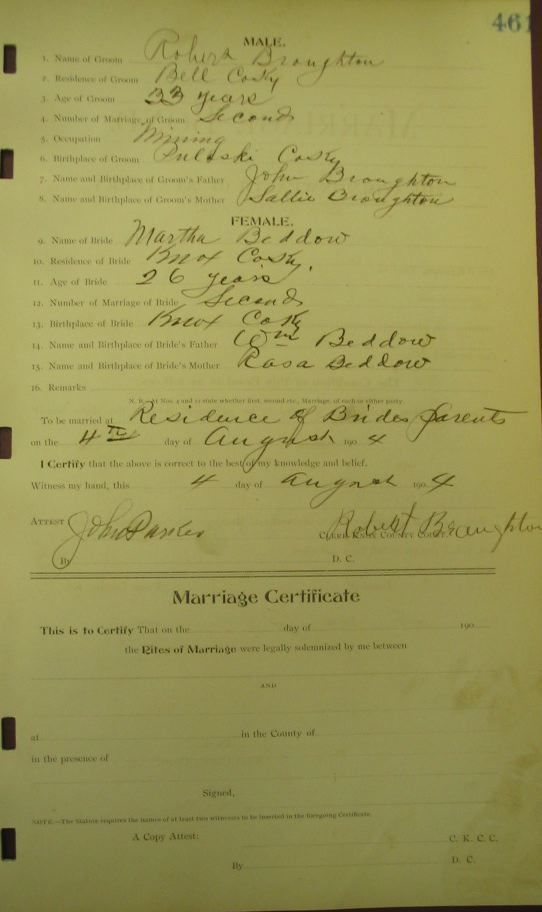 461
MALE.
1. Name of Groom Robert Broughton
2. Residence of Groom Bell Co Ky
3. Age of Groom 33 years
4. Number of Marriage of Groom Second
5. Occupation Mining
6. Birthplace of Groom Puleski Co Ky
7. Name and Birthplace of Groom's Father John Broughton
8. Name and Birthplace of Groom's Mother Sallie Broughton
FEMALE.
9. Name of Bride Martha Beddow
10. Residence of Bride Knox Co Ky.
11. Age of Bride 26 years
12. Number of Marriage of Bride Second
13. Birthplace of Bride Knox Co Ky
14. Name and Birthplace of Bride's Father Wm Beddow
15. Name and Birthplace of Bride's Mother Rosa Beddow
16. Remarks
N. B.—At Nos. 4 and 12 state whether first, second, etc., Marriage, of each or either party
To be married at Residence of Brides parents
on the 4th day of August 190 4
I Certify that the above is correct to the best of my knowledge and belief.
Witness my hand, this 4 day of August 190 4
ATTEST John Parker Robert Broughton
CLERK KNOX COUNTY COURT
By D. C.
Marriage Certificate
This is to Certify That on the day of 190
the Rites of Marriage were legally solemnized by me between
AND
at in the County of
in the presence of
Signed,
NOTE.—The Statute requires the names of at least two witnesses to be inserted in the foregoing Certificate.
A Copy Attest: C. K. C. C.
By D. C.